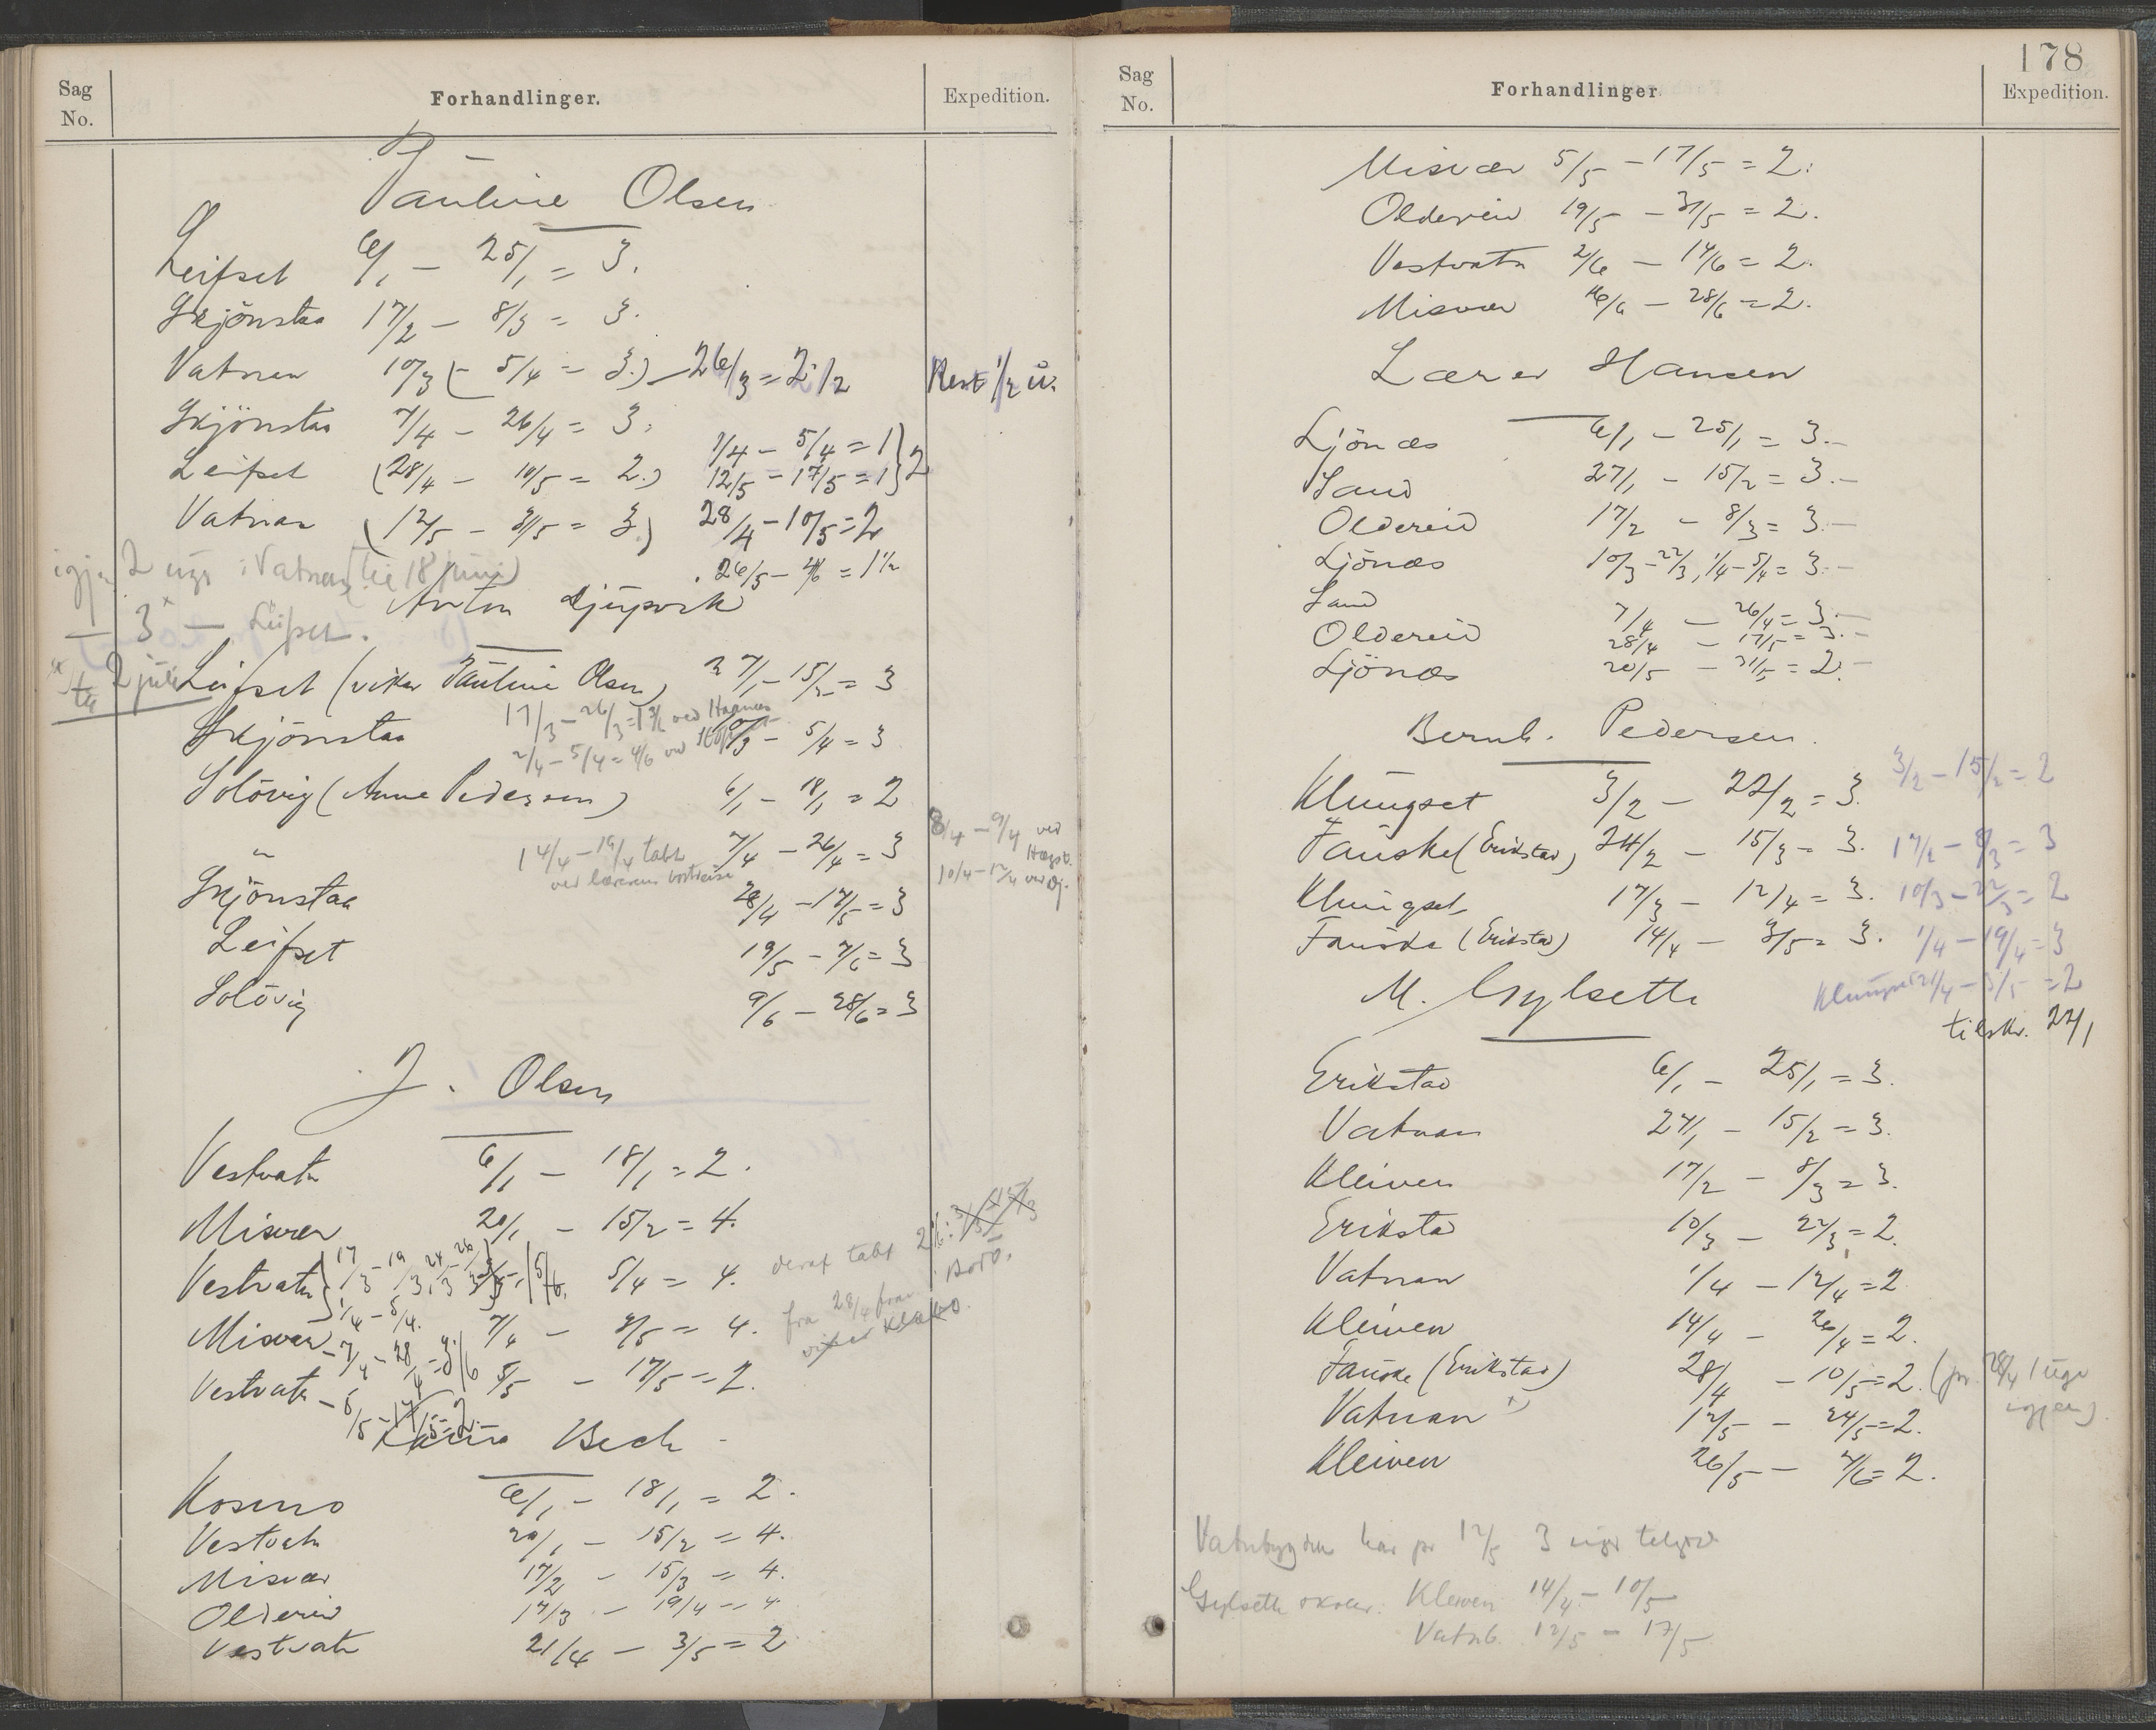 Sag No.
Forhandlinger.
Expedition.
Pauline Olsen
Leifset 6/1 – 25/1 = 3.
Skjönstaa 17/2 – 8/3 = 3.
Vatnan 10/3 (– 5/4 = 3.) – 26/3 = 2 1/2 Rest 1/2 u.
Skjönstaa 7/4 – 26/4 = 3.
1/4 – 5/4 = 1 } 2
Leifset (28/4 – 10/5 = 2.) 12/5 – 17/5 = 1
Vatnan (12/5 – 31/5 = 3.) 28/4 – 10/5 = 2
26/5 – 4/6 = 1 1/2
igjen 2 uger i Vatnan (til 18 juni)
— 3 x — Leifset.
x til 2 juli
Anton Djupvik
Leifset (vikar Pauline Olsen) 27/1 – 15/2 = 3
17/3 – 26/3 = 1 3/6 ved
Skjönstaa 17/3 – 5/4 = 3
2/4 – 5/4 = 4/6 ved
Solövig (Anne Pedersen) 6/1 – 18/1 = 2
8/4 – 9/4 ved
" 7/4 – 26/4 = 3
14/4 – 19/4 tabt
ved lærerens bortreise
10/4 – 12/4 ved Dj.
Skjönstaa 28/4 – 17/5 = 3
Leifset 19/5 – 7/6 = 3
Solövig 9/6 – 28/6 = 3
J. Olsen
Vestvatn 6/1 – 18/1 = 2.
Misvær 20/1 – 15/2 = 4.
Vestvatn 17/3 – 19/3, 24/3 – 26/3 5/4 = 4. deraf tabt
1/4 – 5/4.
Bodö.
Misvær – 7/4 – 28/4 = 3 1/6 7/4 – 3/5 = 4. fra 28/4
Vestvatn – 5/5 – 17/5 = 2. 5/5 – 17/5 = 2.
Bech
Kosmo 6/1 – 18/1 = 2.
Vestvatn 20/1 – 15/2 = 4.
Misvær 17/2 – 15/3 = 4.
Oldereid 17/3 – 19/4 = 4
Vestvatn 21/4 – 3/5 = 2
178
Sag No.
Forhandlinger
Expedition.
Misvær 5/5 – 17/5 = 2.
Oldereid 19/5 – 31/5 = 2.
Vestvatn 2/6 – 14/6 = 2.
Misvær 16/6 – 28/6 = 2.
Lærer Hansen
Ljönæs 6/1 – 25/1 = 3. –
Sand 27/1 – 15/2 = 3. –
Oldereid 17/2 – 8/3 = 3. –
Ljönæs 10/3 – 22/3, 1/4 – 5/4 = 3. –
Sand 7/4 – 26/4 = 3. –
Oldereid 28/4 – 17/5 = 3. –
Ljönæs 20/5 – 31/5 = 2. –
Bernh. Pedersen.
Klungset 3/2 – 22/2 = 3. 3/2 – 15/2 = 2
Fauske (Erikstad) 24/2 – 15/3 = 3. 17/2 – 8/3 = 3
Klungset 17/3 – 12/4 = 3. 10/3 – 22/3 = 2
Fauske (Erikstad) 14/4 – 3/5 = 3. 1/4 – 19/4 = 3
Klungset 21/4 – 3/5 = 2
M. Gylseth
tilskr. 22/1
Erikstad 6/1 – 25/1 = 3.
Vatnan 27/1 – 15/2 = 3.
Kleiven 17/2 – 8/3 = 3.
Erikstad 10/3 – 22/3 = 2.
Vatnan 1/4 – 12/4 = 2
Kleiven 14/4 – 26/4 = 2.
Fauske (Erikstad) 28/4 – 10/5 = 2. (pr. 28/4 1 uge
igjen)
Vatnan x) 12/5 – 24/5 = 2.
Kleiven 26/5 – 7/6 = 2.
Vatnbygden har pr 12/5 3 uger tilgode
Gylseth Kleiven 14/4 – 10/5
Vatnb. 12/5 – 17/5